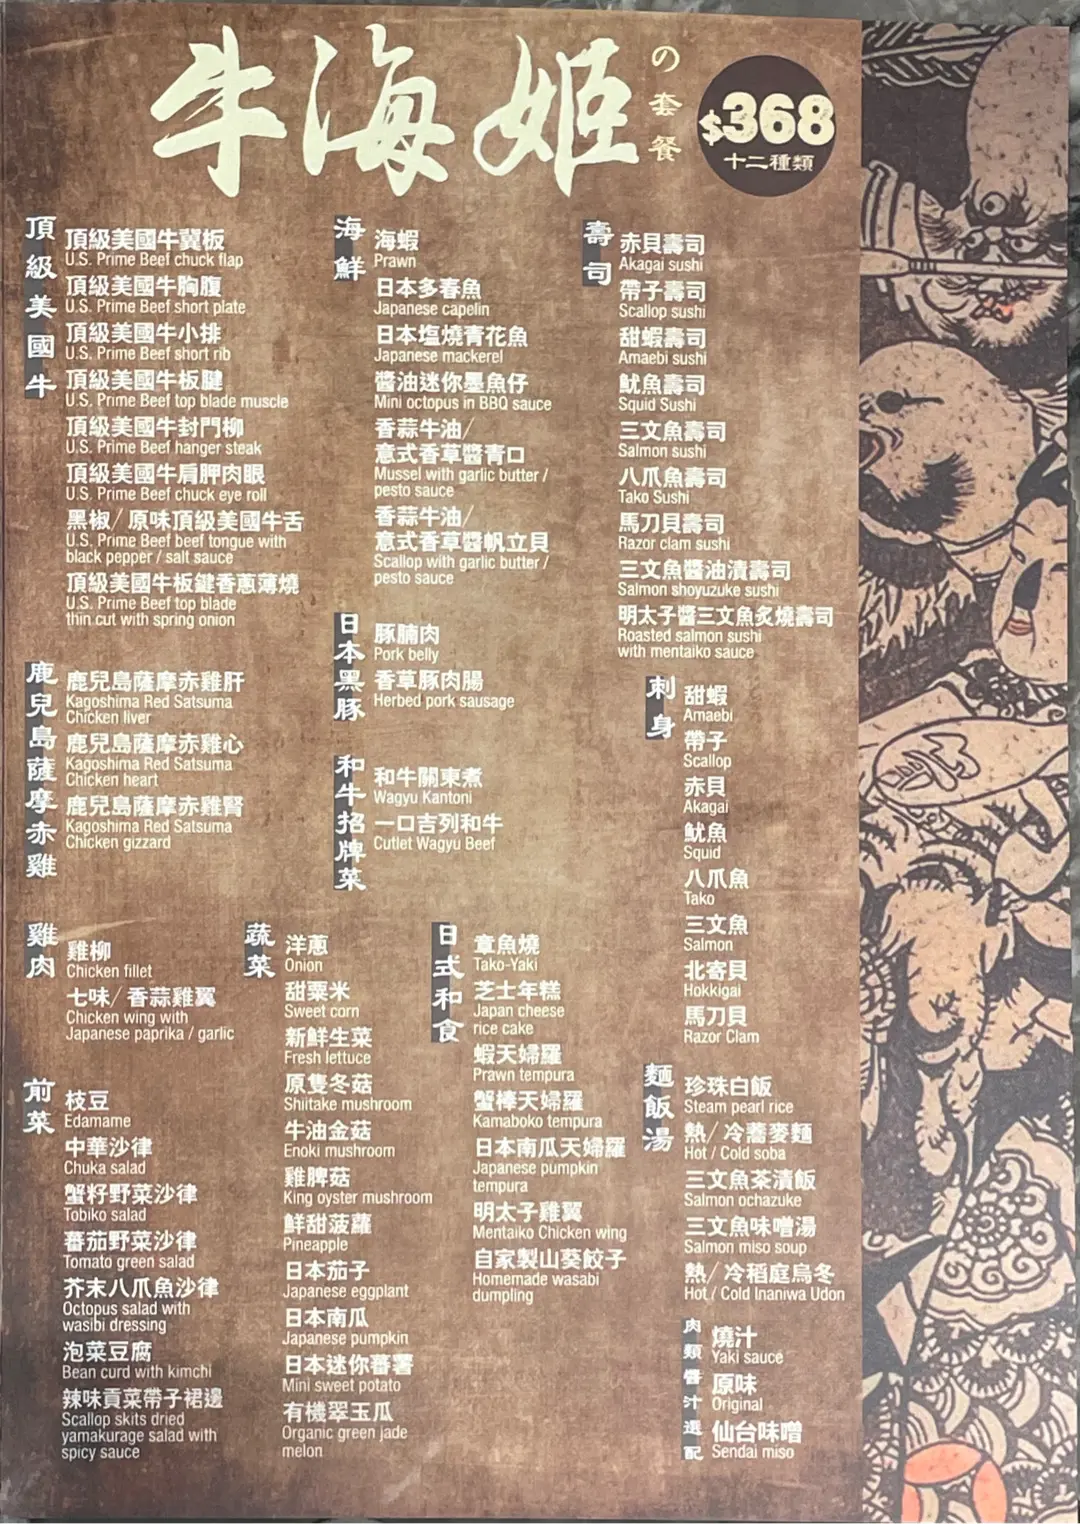 牛海姬
の套餐
$368
十二種類
頂級美國牛
頂級美國牛冀板
U.S. Prime Beef chuck flap
頂級美國牛胸腹
U.S. Prime Beef short plate
頂級美國牛小排
U.S. Prime Beef short rib
頂級美國牛板腱
U.S. Prime Beef top blade muscle
頂級美國牛封門柳
U.S. Prime Beef hanger steak
頂級美國牛肩胛肉眼
U.S. Prime Beef chuck eye roll
黑椒/ 原味頂級美國牛舌
U.S. Prime Beef beef tongue with
black pepper / salt sauce
頂級美國牛板鍵香蔥薄燒
U.S. Prime Beef top blade
thin cut with spring onion
鹿兒島薩摩赤雞
鹿兒島薩摩赤雞肝
Kagoshima Red Satsuma
Chicken liver
鹿兒島薩摩赤雞心
Kagoshima Red Satsuma
Chicken heart
鹿兒島薩摩赤雞腎
Kagoshima Red Satsuma
Chicken gizzard
海鮮
海蝦
Prawn
日本多春魚
Japanese capelin
日本塩燒青花魚
Japanese mackerel
醬油迷你墨魚仔
Mini octopus in BBQ sauce
香蒜牛油/
意式香草醬青口
Mussel with garlic butter /
pesto sauce
香蒜牛油/
意式香草醬帆立貝
Scallop with garlic butter /
pesto sauce
日本黑豚
豚腩肉
Pork belly
香草豚肉腸
Herbed pork sausage
和牛招牌菜
和牛關東煮
Wagyu Kantoni
一口吉列和牛
Cutlet Wagyu Beef
壽司
赤貝壽司
Akagai sushi
帶子壽司
Scallop sushi
甜蝦壽司
Amaebi sushi
魷魚壽司
Squid Sushi
三文魚壽司
Salmon sushi
八爪魚壽司
Tako Sushi
馬刀貝壽司
Razor clam sushi
三文魚醬油漬壽司
Salmon shoyuzuke sushi
明太子醬三文魚炙燒壽司
Roasted salmon sushi
with mentaiko sauce
刺身
甜蝦
Amaebi
帶子
Scallop
赤貝
Akagai
魷魚
Squid
八爪魚
Tako
三文魚
Salmon
北寄貝
Hokkigai
馬刀貝
Razor Clam
雞肉
雞柳
Chicken fillet
七味/ 香蒜雞翼
Chicken wing with
Japanese paprika / garlic
前菜
枝豆
Edamame
中華沙律
Chuka salad
蟹籽野菜沙律
Tobiko salad
蕃茄野菜沙律
Tomato green salad
芥末八爪魚沙律
Octopus salad with
wasibi dressing
泡菜豆腐
Bean curd with kimchi
辣味貢菜帶子裙邊
Scallop skits dried
yamakurage salad with
spicy sauce
蔬菜
洋蔥
Onion
甜粟米
Sweet corn
新鮮生菜
Fresh lettuce
原隻冬菇
Shiitake mushroom
牛油金菇
Enoki mushroom
雞脾菇
King oyster mushroom
鮮甜菠蘿
Pineapple
日本茄子
Japanese eggplant
日本南瓜
Japanese pumpkin
日本迷你蕃薯
Mini sweet potato
有機翠玉瓜
Organic green jade
melon
日式和食
章魚燒
Tako-Yaki
芝士年糕
Japan cheese
rice cake
蝦天婦羅
Prawn tempura
蟹棒天婦羅
Kamaboko tempura
日本南瓜天婦羅
Japanese pumpkin
tempura
明太子雞翼
Mentaiko Chicken wing
自家製山葵餃子
Homemade wasabi
dumpling
麵飯湯
珍珠白飯
Steam pearl rice
熱/ 冷蕎麥麵
Hot / Cold soba
三文魚茶漬飯
Salmon ochazuke
三文魚味噌湯
Salmon miso soup
熱/ 冷稻庭烏冬
Hot / Cold Inaniwa Udon
肉類醬汁選配
燒汁
Yaki sauce
原味
Original
仙台味噌
Sendai miso